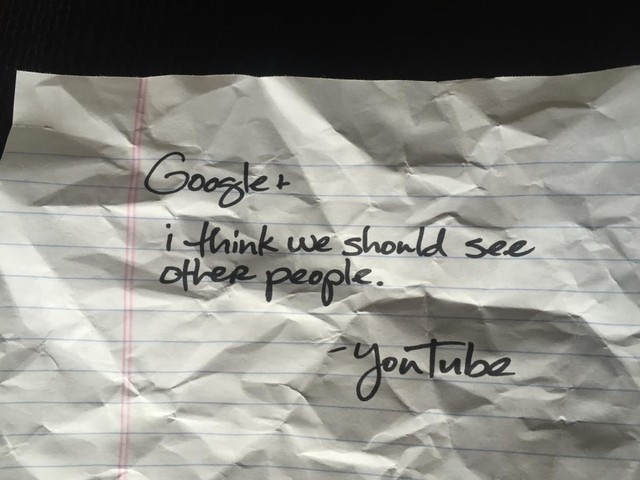 Google+
i think we should see
other people.
-YouTube